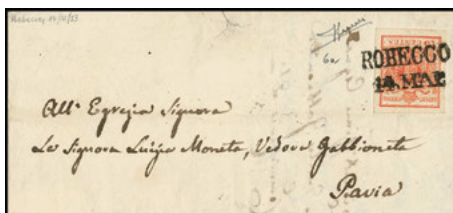 ROBECCO
14. MAR
All' Egregia Signora
La Signora Luigia Moneta, Vedova Gabbioneta
Pavia